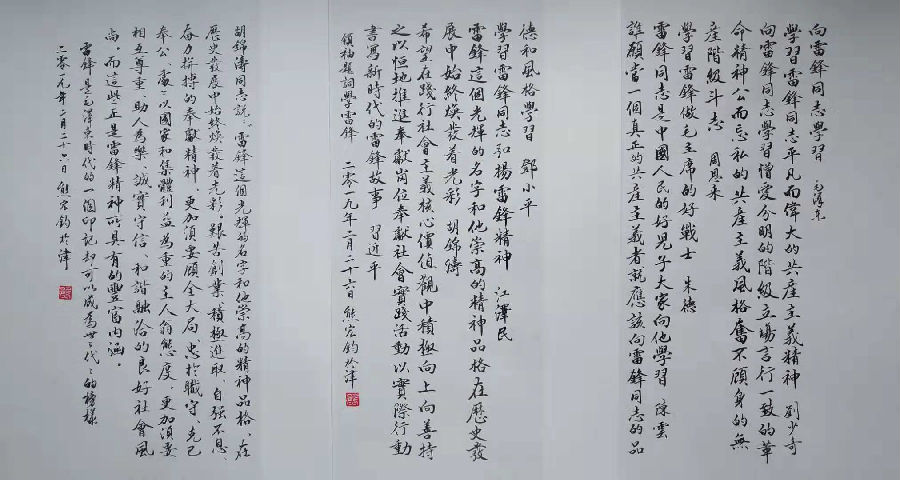 向雷鋒同志學習 毛澤東
學習雷鋒同志平凡而偉大的共產主義精神 劉少奇
向雷鋒同志學習憎愛分明的階級立場言行一致的革
命精神公而忘私的共產主義風格奮不顧身的無
產階級斗志 周恩来
學習雷鋒做毛主席的好戰士 朱德
雷鋒同志是中國人民的好兒子大家向他學習 陳雲
誰願當一個真正的共產主義者就應該向雷鋒同志的品
德和風格學習 鄧小平
學習雷鋒同志弘揚雷鋒精神 江澤民
雷鋒這個光輝的名字和他崇高的精神品格在歷史發
展中始終煥發着光彩 胡錦濤
希望在踐行社會主義核心價值觀中積極向上向善持
之以恒地推進奉獻崗位奉獻社會實踐活動以實際行動
書寫新時代的雷鋒故事 習近平
領袖題詞學雷鋒 二零一九年二月二十六日 熊宏鈞於津
胡錦濤同志說，雷鋒這個光輝的名字和他崇高的精神品格，在
歷史發展中始終煥發著光彩，艱苦創業、積極進取、自強不息、
奋力拼搏的奉獻精神，更加須要顧全大局、忠於職守、克己
奉公、處處以國家和集體利益為重的主人翁態度，更加須要
相互尊重、助人為樂、誠實守信、和諧融洽的良好社會風
尚。而這些正是雷鋒精神所具有的豐富内涵。
雷鋒是毛澤東時代的一個印記却可以成為世世代代的榜樣
二零一九年二月二十六日 熊宏鈞於津